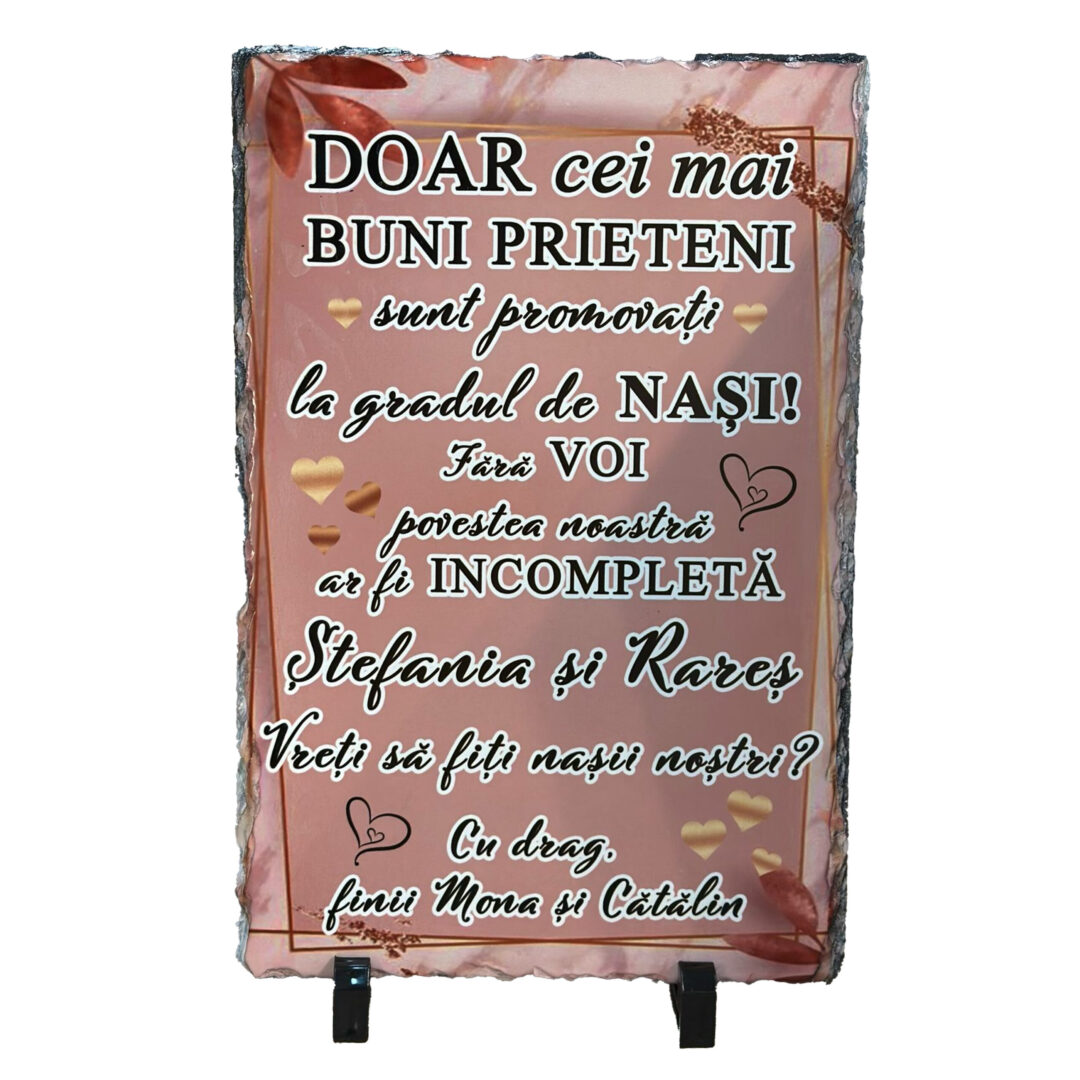 DOAR cei mai
BUNI PRIETENI
sunt promovați
la gradul de NAȘI!
Fără VOI
povestea noastră
ar fi INCOMPLETĂ
Ștefania și Rareș
Vreți să fiți nașii noștri?
Cu drag,
finii Mona și Cătălin